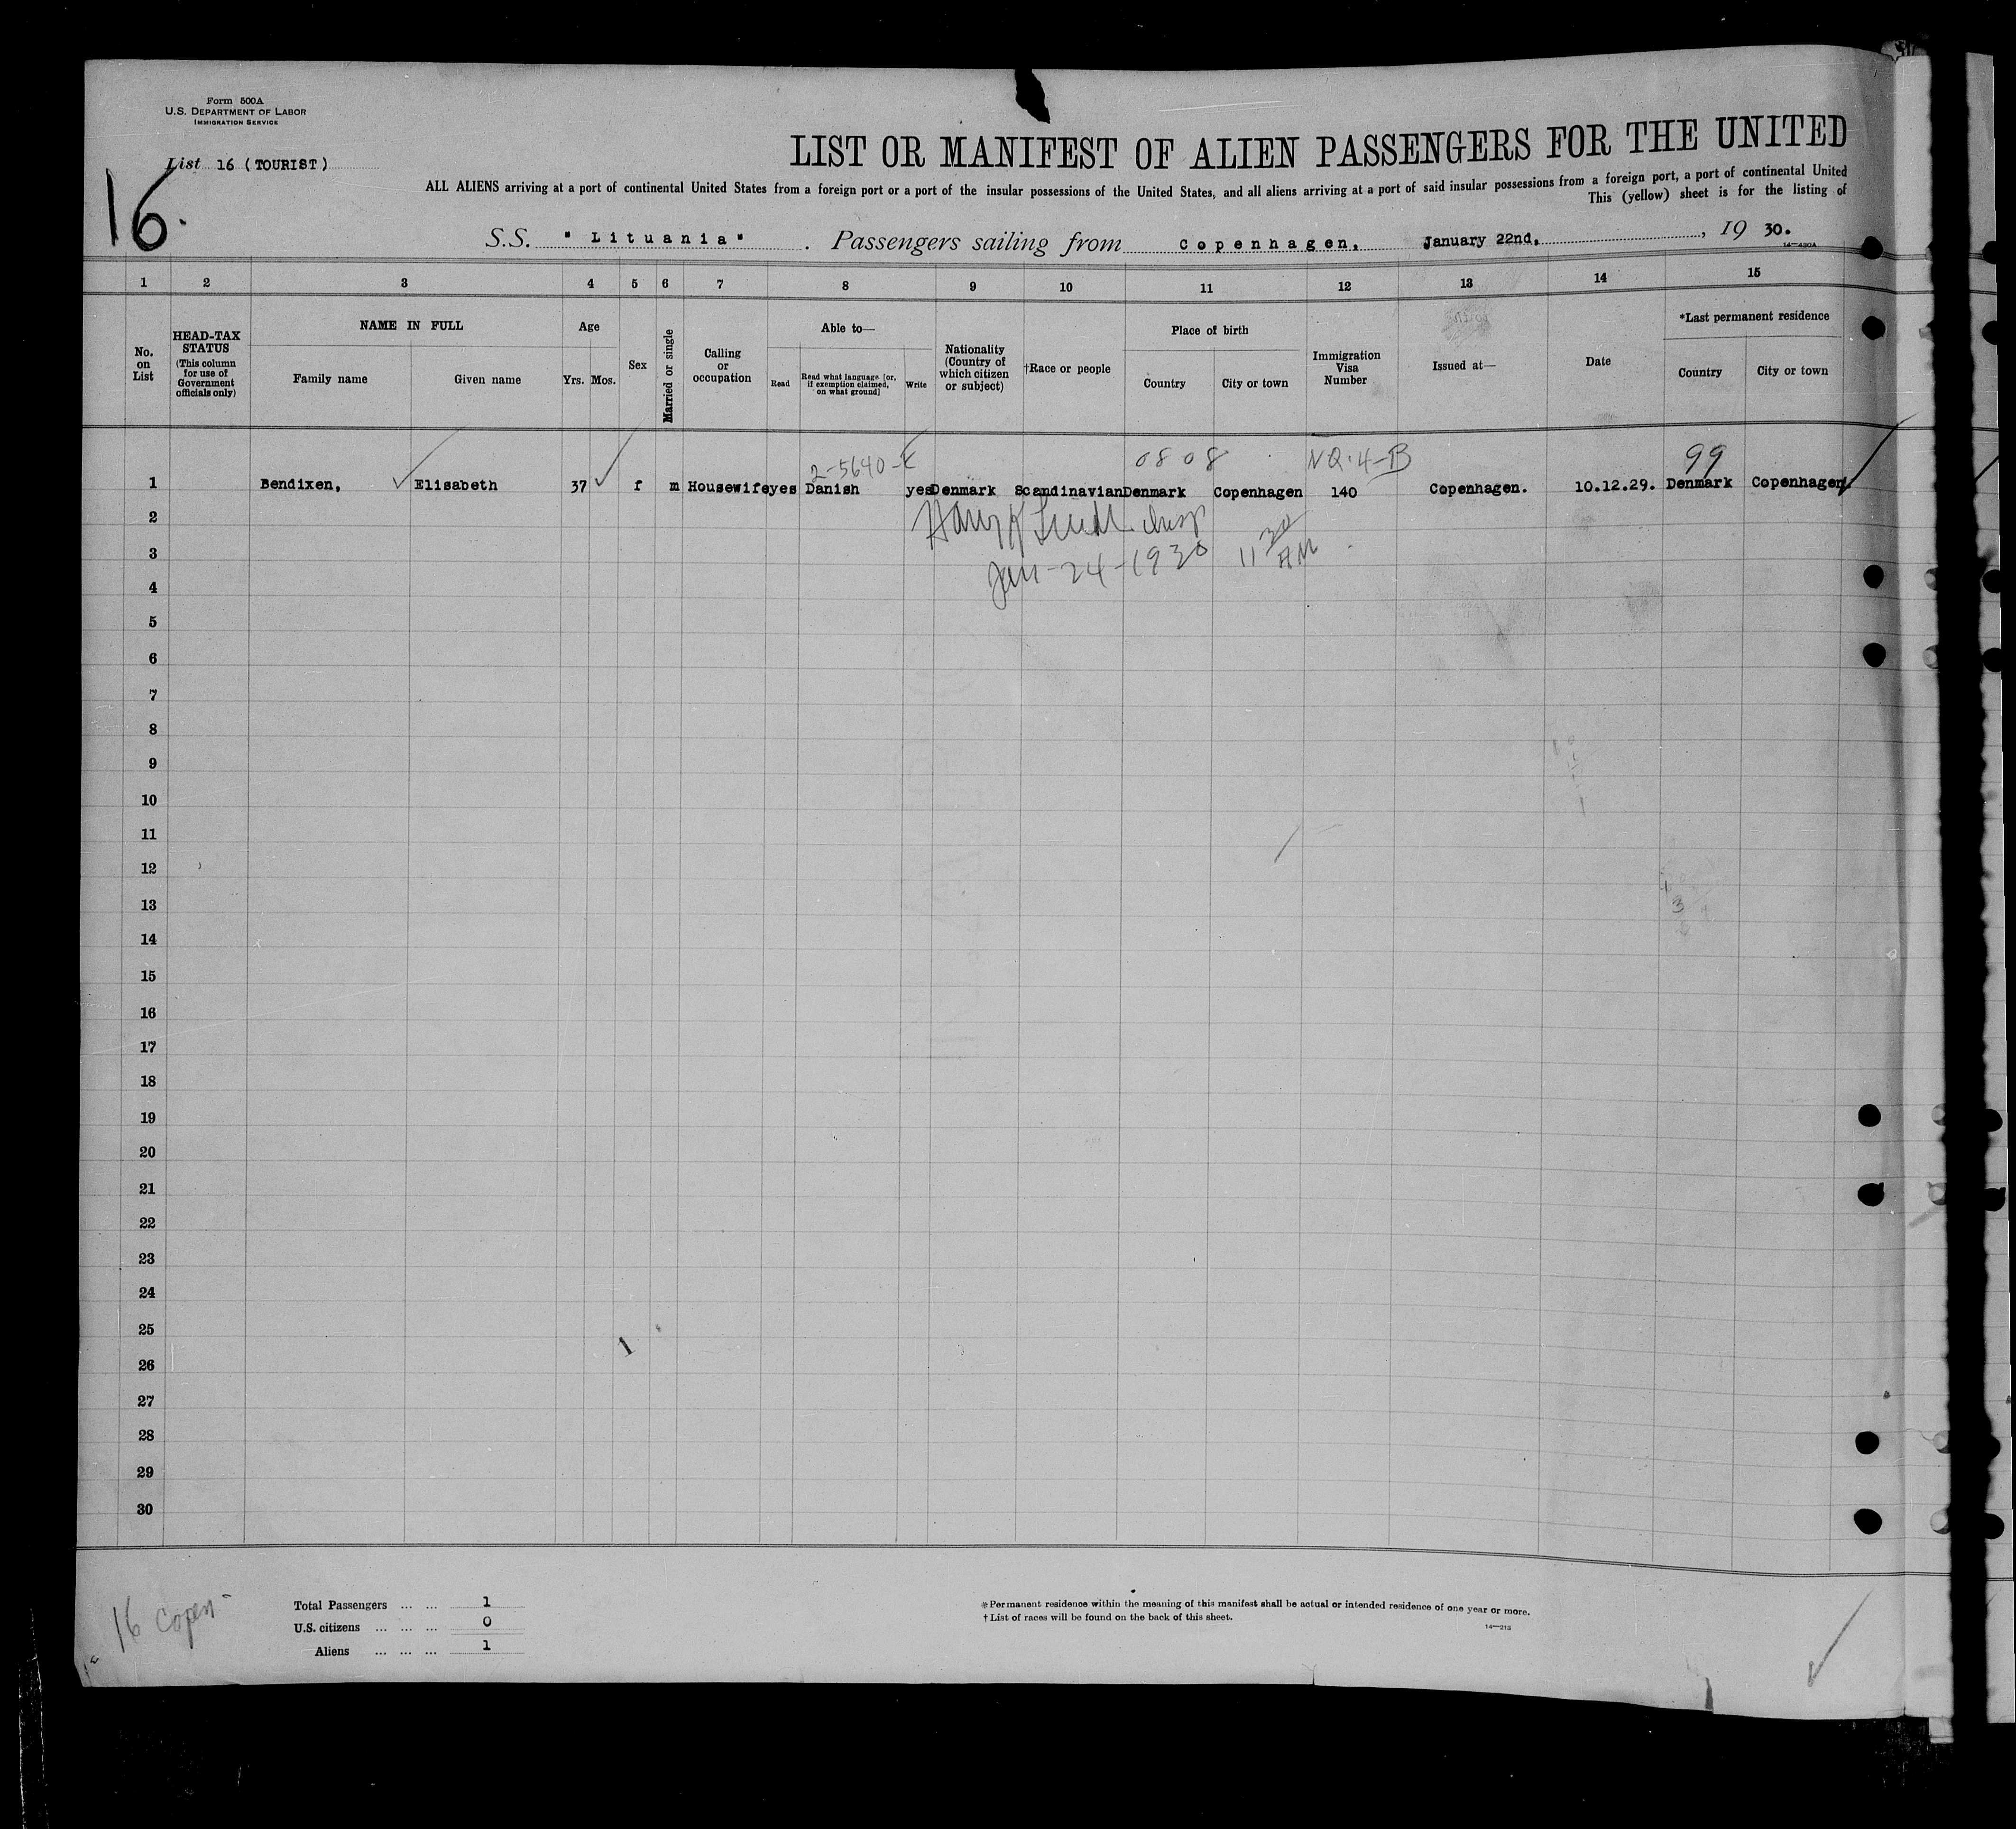 Form 500A
U.S. DEPARTMENT OF LABOR
IMMIGRATION SERVICE
List 16 (TOURIST)
16.
LIST OR MANIFEST OF ALIEN PASSENGERS FOR THE UNITED
ALL ALIENS arriving at a port of continental United States from a foreign port or a port of the insular possessions of the United States, and all aliens arriving at a port of said insular possessions from a foreign port, a port of continental United
This (yellow) sheet is for the listing of
S.S. "Lituania". Passengers sailing from Copenhagen, January 22nd, , 19 30.
14—430A
1 2 3 4 5 6 7 8 9 10 11 12 13 14 15
No. on List
HEAD-TAX STATUS (This column for use of Government officials only)
NAME IN FULL
Family name Given name
Age
Yrs. Mos.
Sex
Married or single
Calling or occupation
Able to—
Read
Read what language [or, if exemption claimed, on what ground]
Write
Nationality (Country of which citizen or subject)
†Race or people
Place of birth
Country City or town
Immigration Visa Number
Issued at—
Date
*Last permanent residence
Country City or town
2-5640-K 0808 NQ-4-B 99
1 Bendixen, Elisabeth 37 f m Housewife yes Danish yes Denmark Scandinavian Denmark Copenhagen 140 Copenhagen. 10.12.29. Denmark Copenhagen.
Insp
Jan-24-1930 11 30 AM
2
3
4
5
6
7
8
9
10
11
12
13
14
15
16
17
18
19
20
21
22
23
24
25
26
27
28
29
30
16 Copen-
Total Passengers ... ... 1
U.S. citizens ... ... ... 0
Aliens ... ... ... 1
*Permanent residence within the meaning of this manifest shall be actual or intended residence of one year or more.
†List of races will be found on the back of this sheet.
14—213